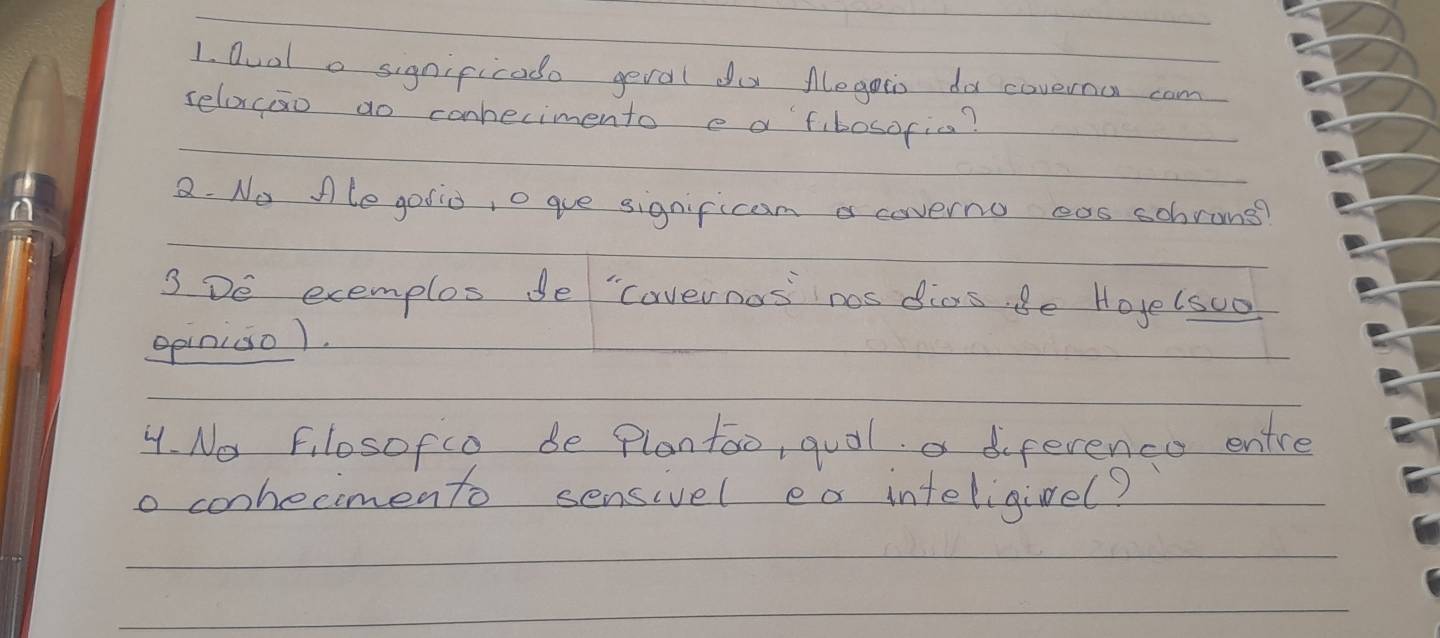 1. Qual o significado geral da Alegoria da caverna com
relação ao conhecimento e a filosofia?
2- Na Alegoria, o que significam a caverna eas sobrans?
3 Dê exemplos de "cavernas" nos dias de Hoje (sua
opinião).
4- Na Filosofia de Plantão, qual a diferença entre
o conhecimento sensivel e o inteligivel?